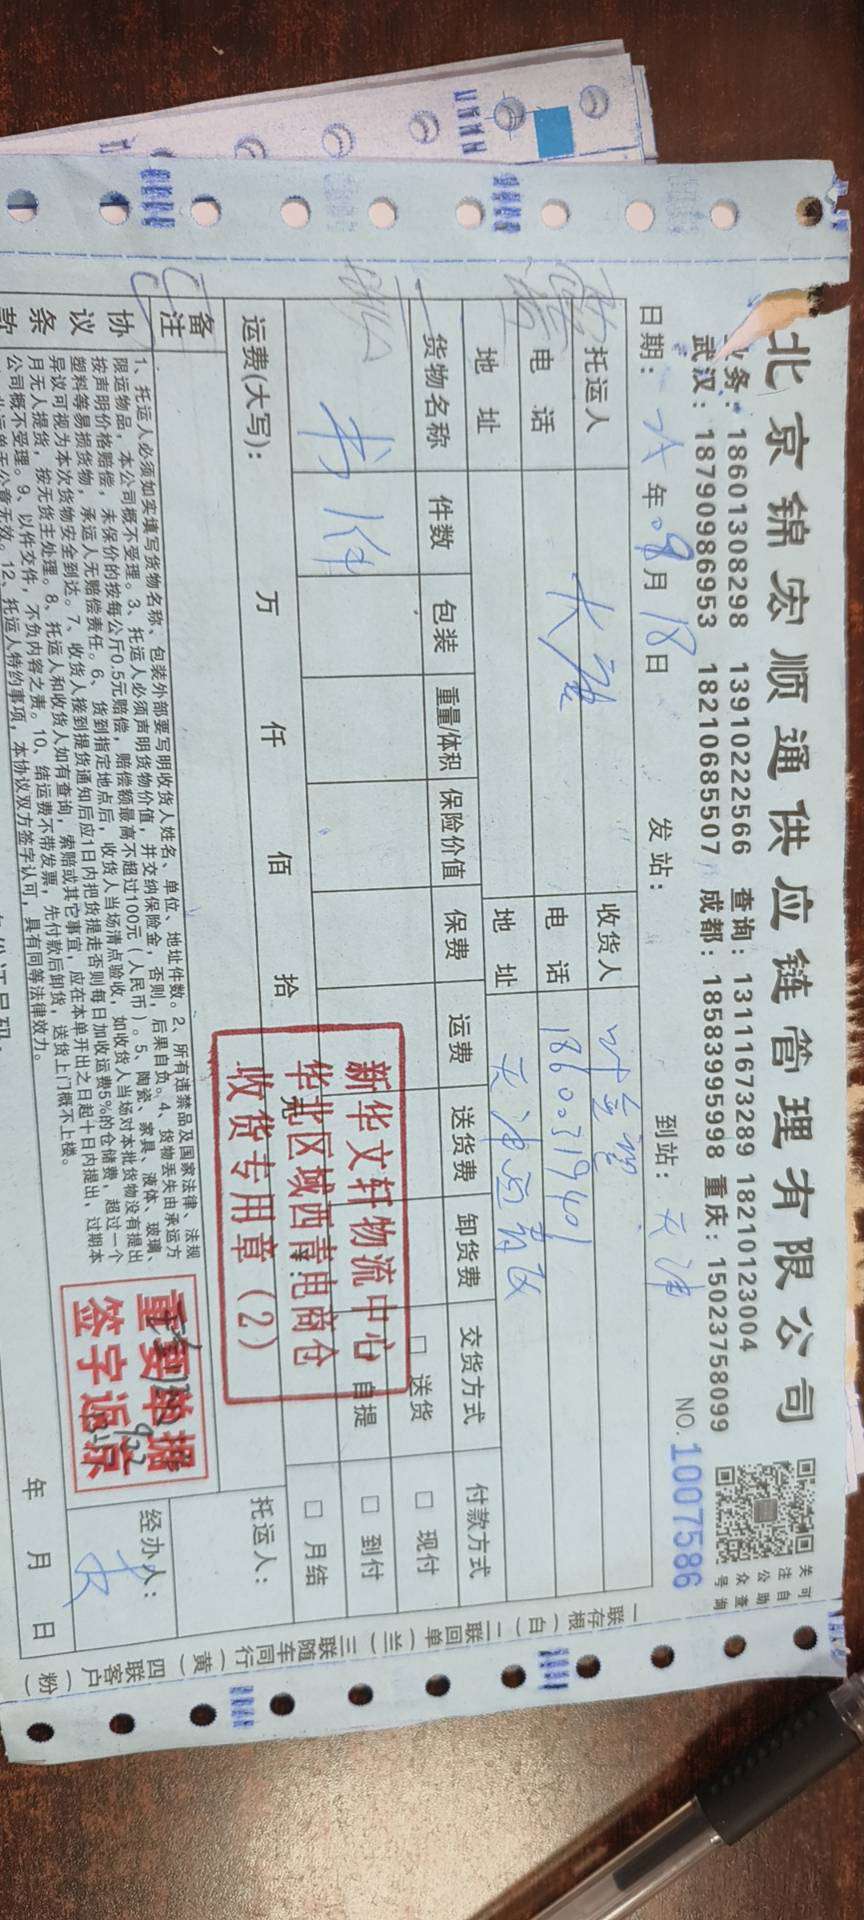 北京锦宏顺通供应链管理有限公司
业务：18601308298 13910222566 查询：13111673289 18210123004
武汉：18790986953 18210685507 成都：18583995998 重庆：15023758099
可自助查询
关注公众号
日期： 年08月18日 发站： 到站：天津 NO.1007586
托运人 大 收货人
电话 电话 18600319401
地址 地址 天津西青区
货物名称 件数 包装 重量/体积 保险价值 保费 运费 送货费 卸货费 交货方式 付款方式
书 1件
□ 送货 □ 现付
自提 □ 到付
□ 月结
运费(大写)： 万 仟 佰 拾 元
托运人：
新华文轩物流中心
华北区域西青电商仓
收货专用章（2）
备注
重要单据
签字返京
经办人：
协议条款
1、托运人必须如实填写货物名称、包装外部要写明收货人姓名、单位、地址件数。2、所有违禁品及国家法律、法规
限运物品，本公司概不受理。3、托运人必须声明货物价值，并交纳保险金，否则，后果自负。4、货物丢失由承运方
按声明价格赔偿，未保价的按每公斤0.5元赔偿，赔偿额最高不超过100元（人民币）。5、陶瓷、家具、液体、玻璃、
塑料等易损货物，承运人无赔偿责任。6、货到指定地点后，收货人当场清点验收，如收货人当场对本批货物没有提出
异议可视为本次货物安全到达。7、收货人接到提货通知后应1日内把货提走否则每日加收运费5%的仓储费，超过一个
月无人提货，按无货主处理。8、托运人和收货人如有查询，索赔或其它事宜，应在本单开出之日起十日内提出，过期本
公司概不受理。9、以件交件，不负内容之责。10、结运费不带发票，先付款后卸货，送货上门概不上楼。
无公章无效。12、托运人特约事项，本协议双方签字认可，具有同等法律效力。
年 月 日
一联存根（白）二联回单（兰）三联随车同行（黄）四联客户（粉）